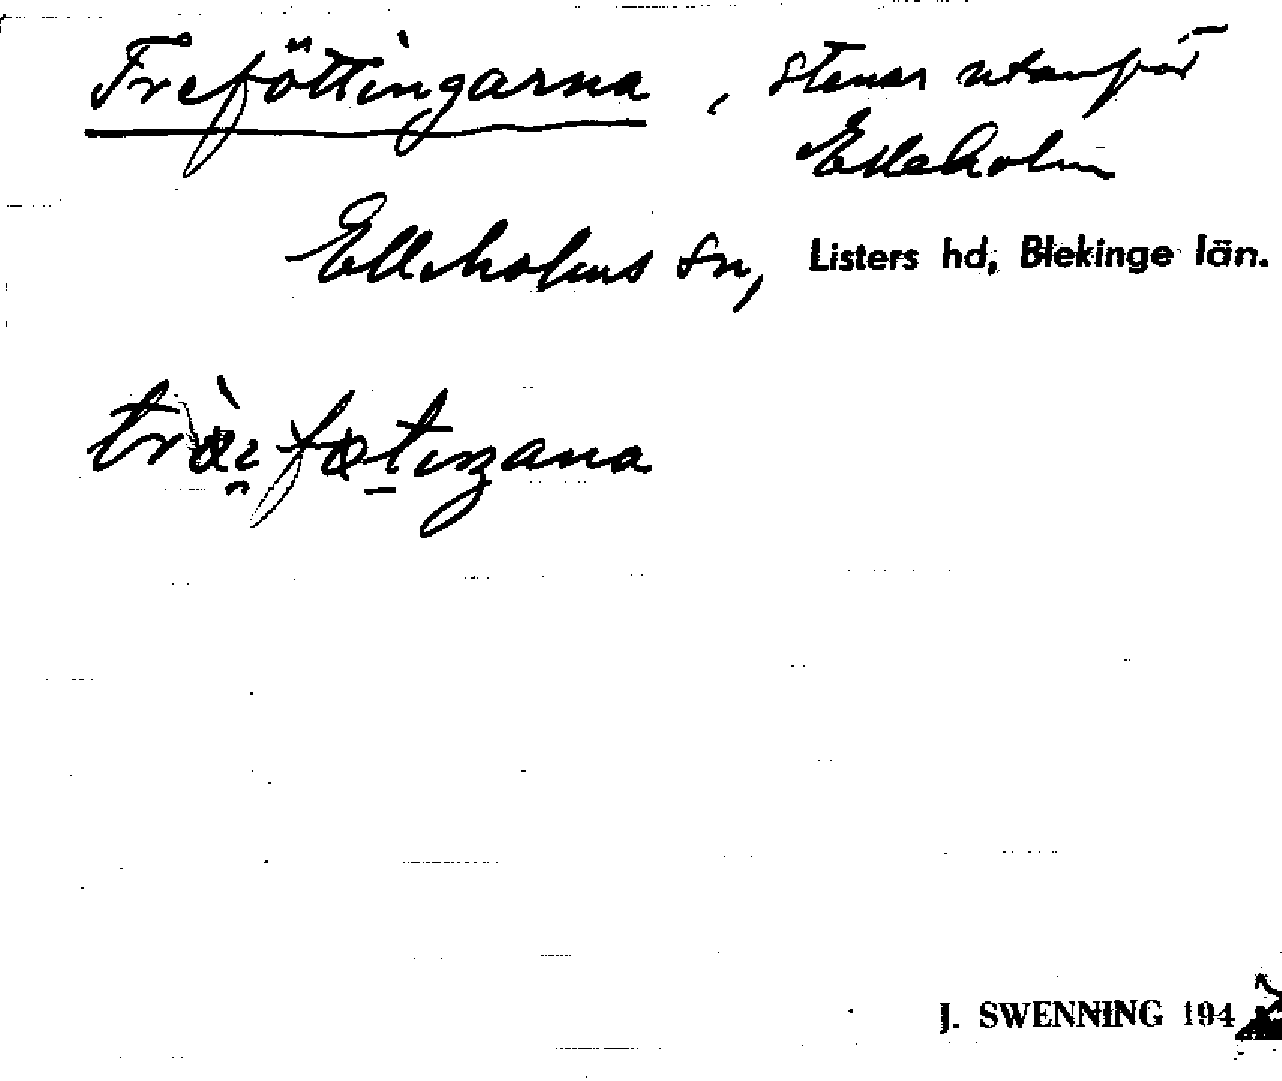 Treföttingarna, stenar utanför
Elleholm
Elleholms sn, Listers hd, Blekinge län.
J. SWENNING 194